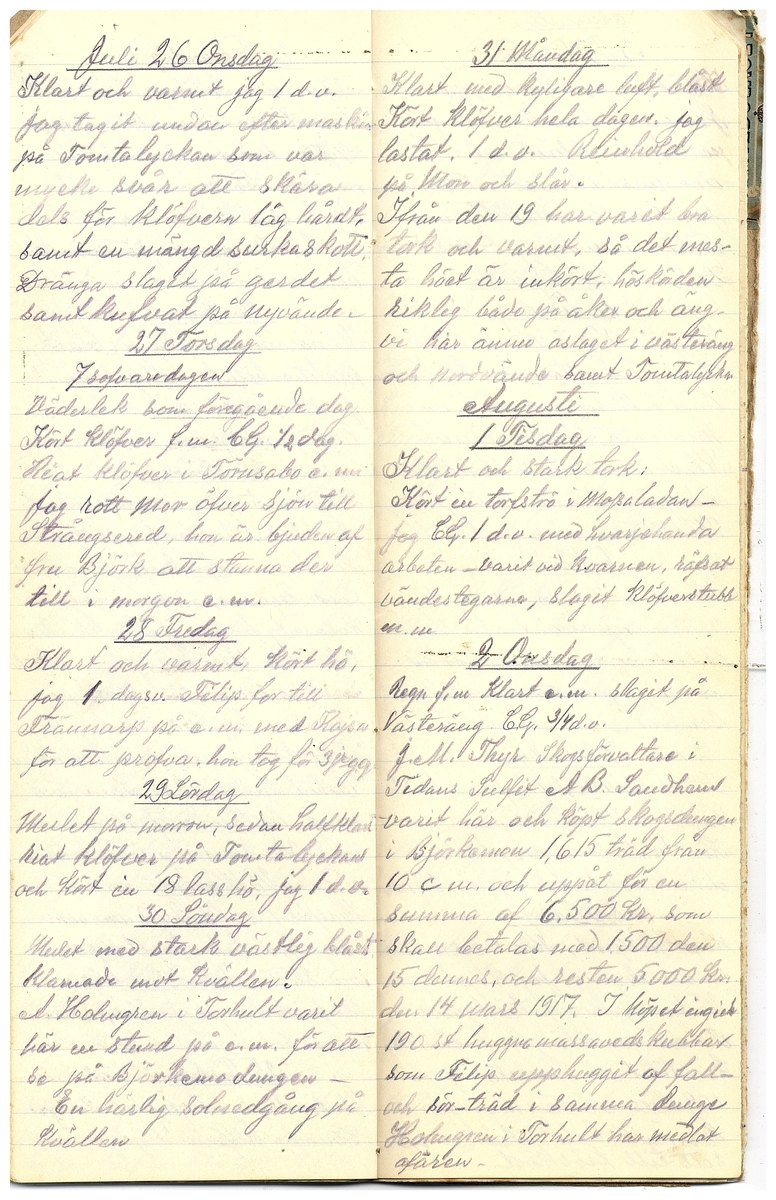 Juli 26 Onsdag
Klart och varmt jag 1 d.v.
jag tagit undan efter maskin
på Tomtalyckan som var
mycke svår att skära
dels för klöfvern låg hårdt,
samt en mängd surkaskott,
Dränga slaget på gerdet
samt kufvat på nyvände.
27 Torsdag
7 sofvaredagen
Väderlek som föregående dag.
Kört klöfver f.m. CG. 1/2 dag.
Hiat klöfver i Torusabo e.m.
Jag rott Mor öfver sjön till
Strängsered, hon är bjuden af
fru Björk att stanna der
till i morgon e.m.
28 Fredag
Klart och varmt, kört hö,
jag 1 dagsv. Filip for till
Frännarp på e.m. med Kajsa
för att pröfva, hon tog för 3je gg
29 Lördag
Mulet på morron, sedan halfklart
hiat klöfver på Tomtalyckans
och kört in 18 lass hö, jag 1 d.v.
30 Söndag
Mulet med stark västlig blåst
klarnade mot kvällen.
A. Holmgren i Torhult varit
här en stund på e.m. för att
se på Björkemo dungen –
En härlig solnedgång på
kvällen
31 Måndag
Klart med kyligare luft, blåst
Kört klöfver hela dagen. jag
lastat, 1 d.v. Reinhold
på Mon och slår.
Ifrån den 19 har varit bra
tork och varmt, så det mes-
ta höet är inkört, höskörden
riklig både på åker och äng.
vi har ännu oslaget i västeräng
och nordvände samt Tomtalyckn
Augusti
1 Tisdag
Klart och stark tork:
Kört in torfströ i Mossaladan –
jag CG. 1 d.v. med hvarjehanda
arbeten – varit vid kvarnen, räfsat
vändestegarne, slagit klöfverstubb
m.m.
2 Onsdag
Regn f.m Klart e.m. slagit på
Västeräng. CG. 3/4 d.v.
J.M. Thyr Skogsförvaltare i
Tidans Sulfit A B. Sandhem
varit här och köpt skogsdungen
i Björkemon 1,615 träd från
10 c m. och uppåt för en
summa af 6,500 Kr. som
skall betalas med 1,500 den
15 dennes, och resten 5000 Kr.
den 14 mars 1917. I köpet ingick
190 st huggna massavedskubbar
som Filip upphuggit af fall-
och sör-träd i samma dunge
Holmgren i Torhult har medlat
afären –